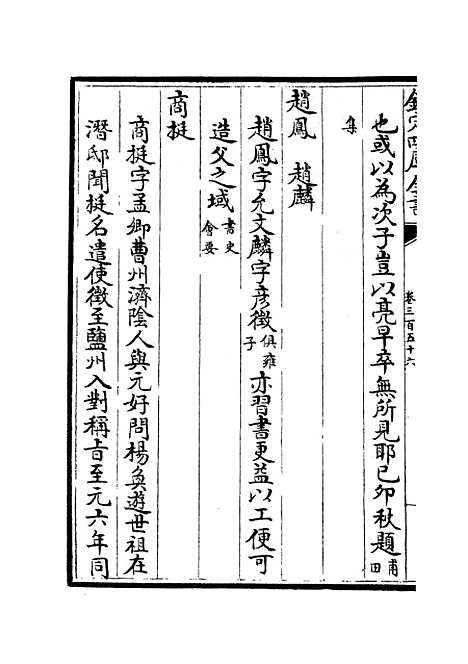 欽定四庫全書
卷三百五十六
也或以為次子豈以亮早卒無所見耶已卯秋題甫田
集
趙鳳　趙麟
趙鳳字允文麟字彥徵俱雍子亦習書更益以工便可
造父之域書史會要
商挺
商挺字孟卿曹州濟陰人與元好問楊奐遊世祖在
潛邸聞挺名遣使徵至鹽州入對稱旨至元六年同